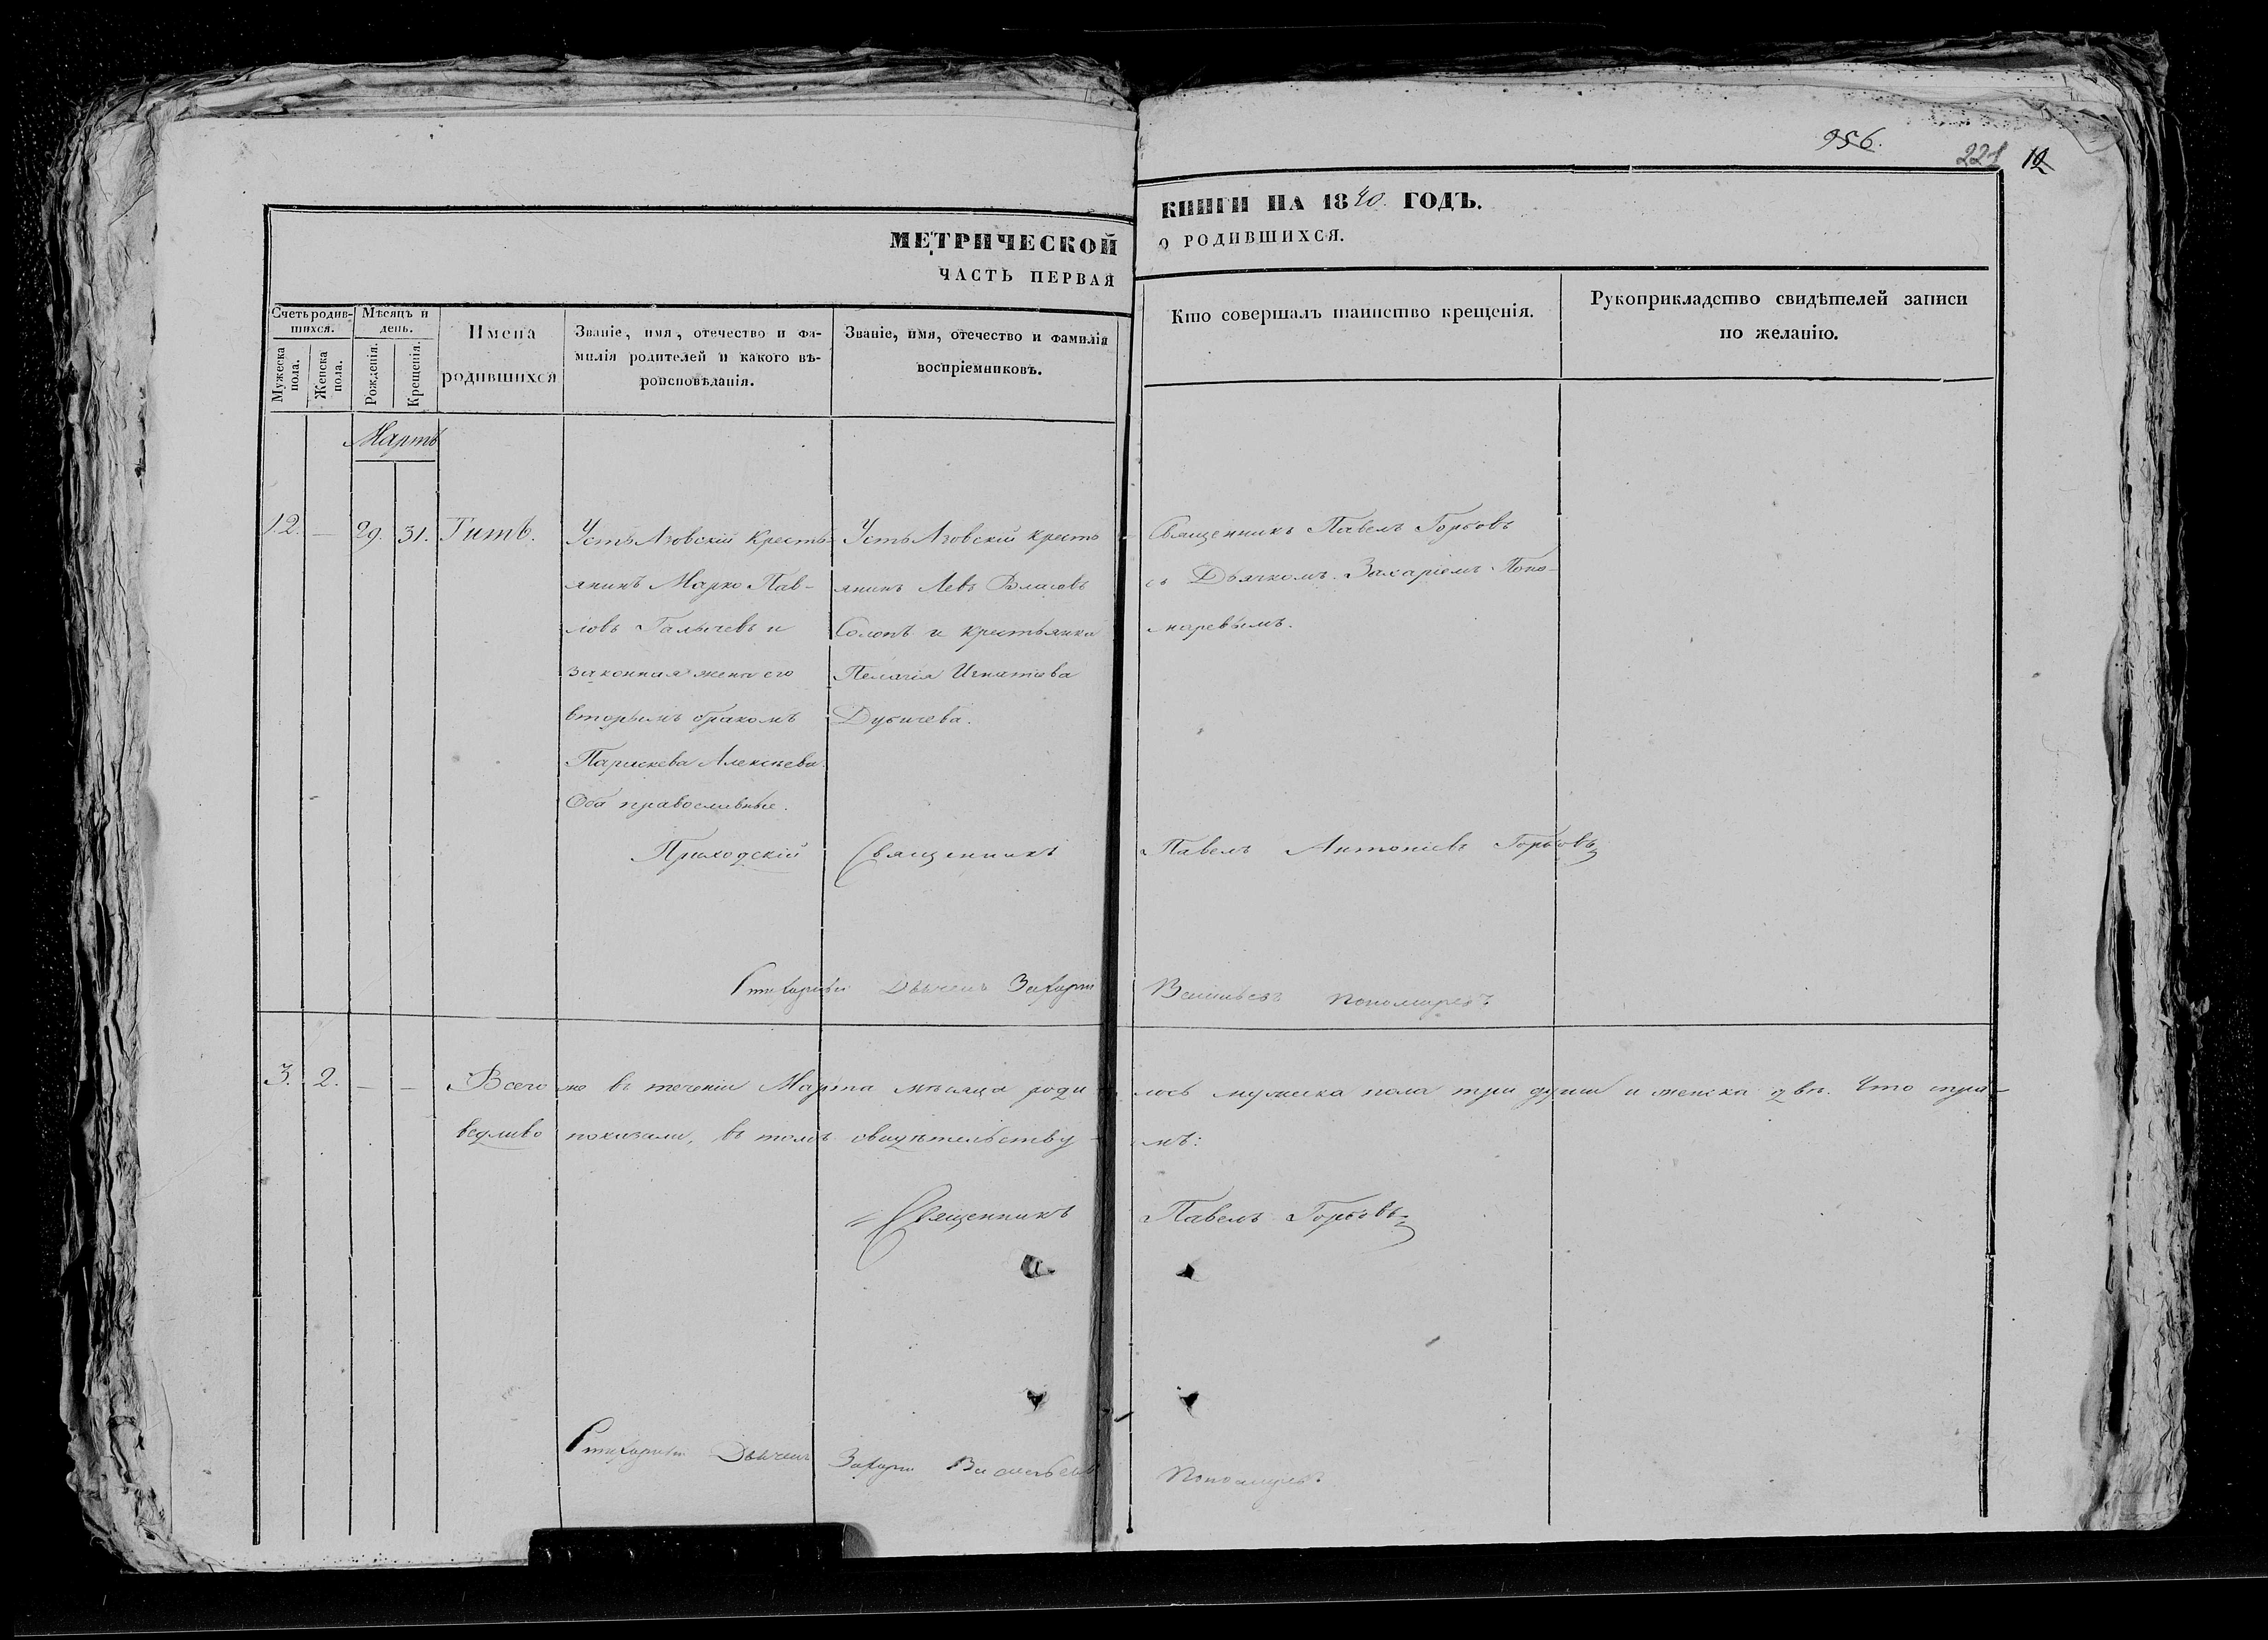 956.
221 12
МЕТРИЧЕСКОЙ КНИГИ НА 1840 ГОДЪ.
ЧАСТЬ ПЕРВАЯ О РОДИВШИХСЯ.
Счетъ родившихся.
Мужеска пола.
Женска пола.
Мѣсяцъ и день.
Рожденія.
Крещенія.
Имена родившихся
Званіе, имя, отечество и фа-
милія родителей и какого вѣ-
роисповѣданія.
Званіе, имя, отечество и фамилія
воспріемниковъ.
Кто совершалъ таинство крещенія.
Рукоприкладство свидѣтелей записи
по желанію.
Мартъ
12. — 29. 31. Титъ.
Усть Крестъ-
янинъ Марко Пав-
ловъ и
законная жена его
вторымъ бракомъ
Параскева Алексѣева.
Оба православные.
Усть кресть
янинъ Левъ Власовъ
и крестьянка
Пелагія Игнатова
Священникъ Павелъ Горбовъ
съ Дьячкомъ Захаріемъ Поно-
маревымъ.
Приходскій Священникъ Павелъ Антоніевъ Горбовъ
Дьячекъ Захари Васильевъ Пономаревъ
3. 2. — — Всего же въ теченіи Марта мѣсяца роди-лось мужеска пола три души и женска двѣ. Что спра-
ведливо показали, въ томъ свидѣтельству-мъ:
Священникъ Павелъ Горбовъ
Дьячекъ Захари Васильевъ Пономаревъ